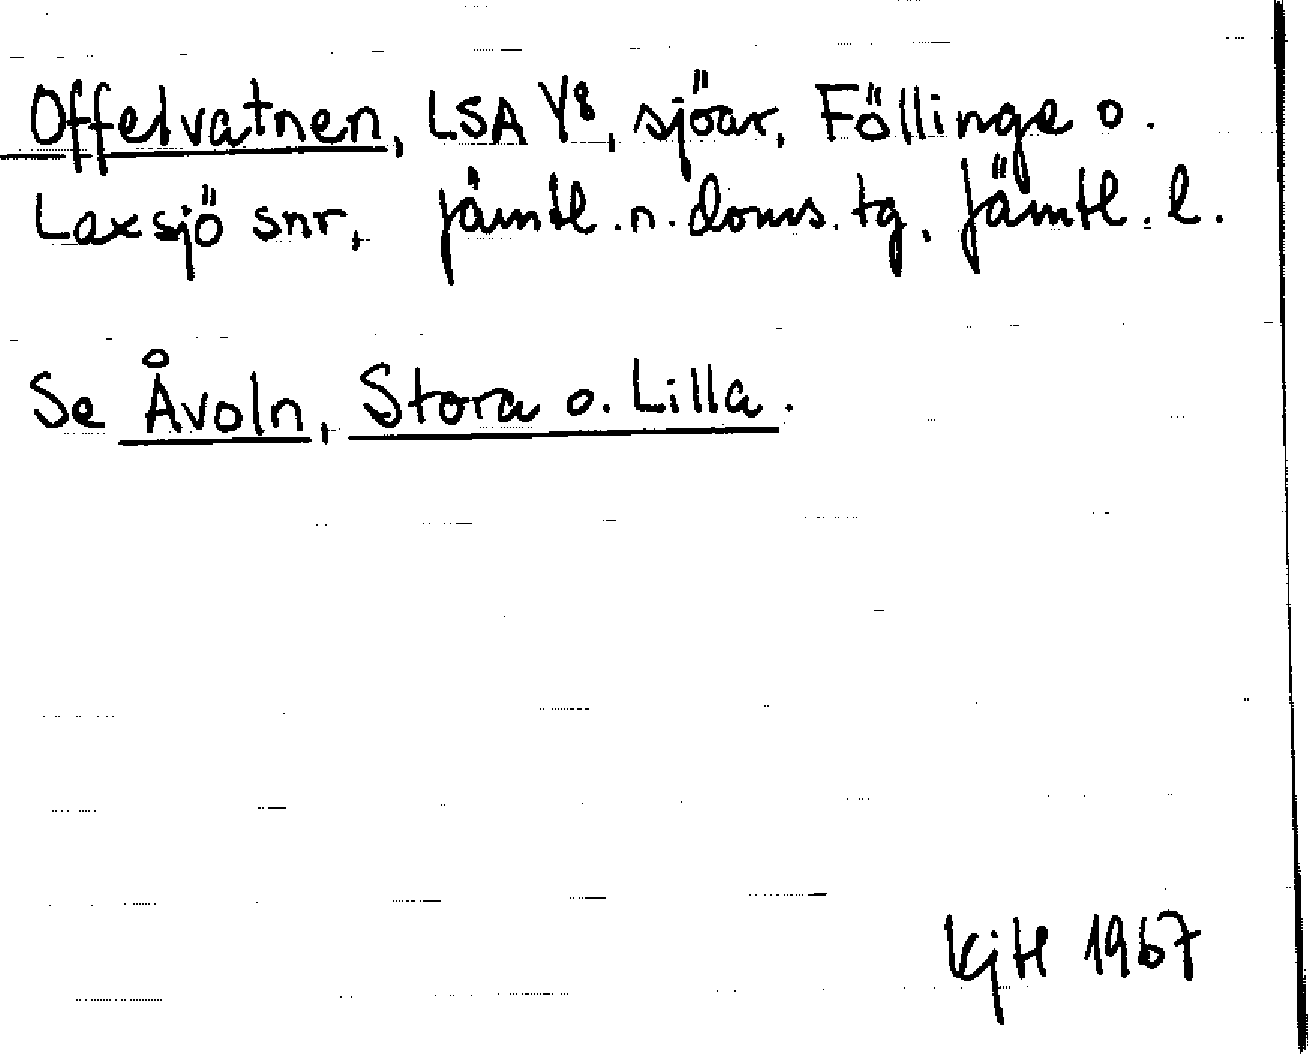 Offelvatnen, LSA Y8, sjöar, Föllinge o.
Laxsjö snr, Jämtl. n. doms. tg, Jämtl. l.
Se Åvoln, Stora o. Lilla.
KjH 1967